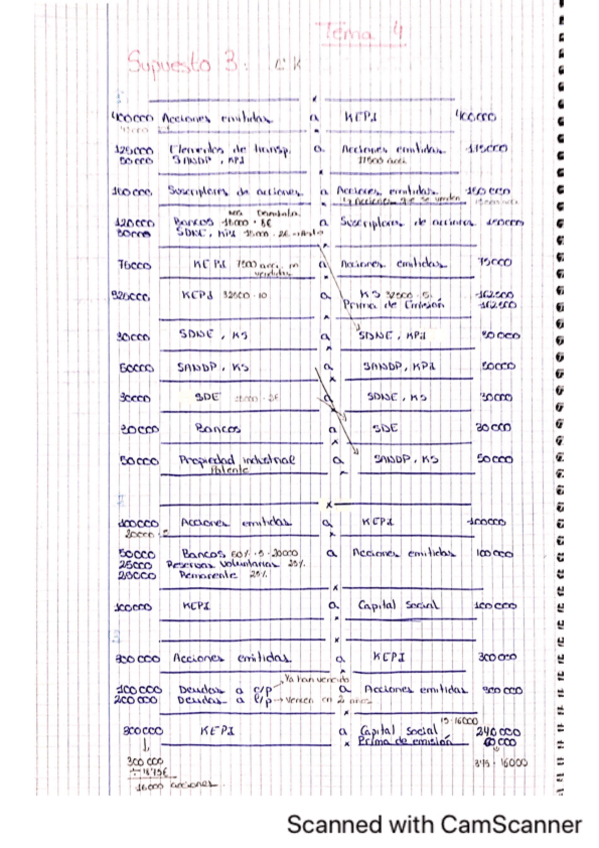 Tema 4
Supuesto 3:
400000 Acciones emitidas a KEPI 400000
125000 Elementos de transp. a Acciones emitidas 175000
50000 SANDP, KPI
Suscriptores de acciones a Acciones emitidas
120000 Bancos a Suscriptores de acciones
30000
75000 KEPI a Acciones emitidas 75000
KEPI 32500 · 10 a KS 32500 · 5 162500
Prima de Emisión 162500
30000 SDNE, KS a SDNE, KPI 30000
50000 SANDP, KS a SANDP, KPI 50000
30000 SDE a SDNE, KS 30000
30000 Bancos a SDE 30000
50000 Propiedad industrial a SANDP, KS 50000
Patente
100000 Acciones emitidas a KEPI 100000
20000 · 5
50000 Bancos 50% · 5 · 20000 a Acciones emitidas 100000
25000 Reservas voluntarias 25%
25000 Remanente 25%
100000 KEPI a Capital Social 100000
300000 Acciones emitidas a KEPI 300000
Ya han vencido
100000 Deudas a c/p a Acciones emitidas 300000
200000 Deudas a l/p → vencen en 2 años
15 · 16000
300000 KEPI a Capital Social 240000
Prima de emisión 60000
300 000
÷ 18'75€
3'75 · 16000
16000 acciones.
Scanned with CamScanner